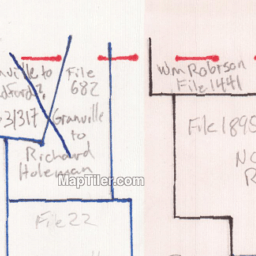 nville to
dford?
63/317
File
682
Granville
to
Richard
Holeman
File 22
Wm Robrson
File 1441
File 1895
NO
R
MapTiler.com